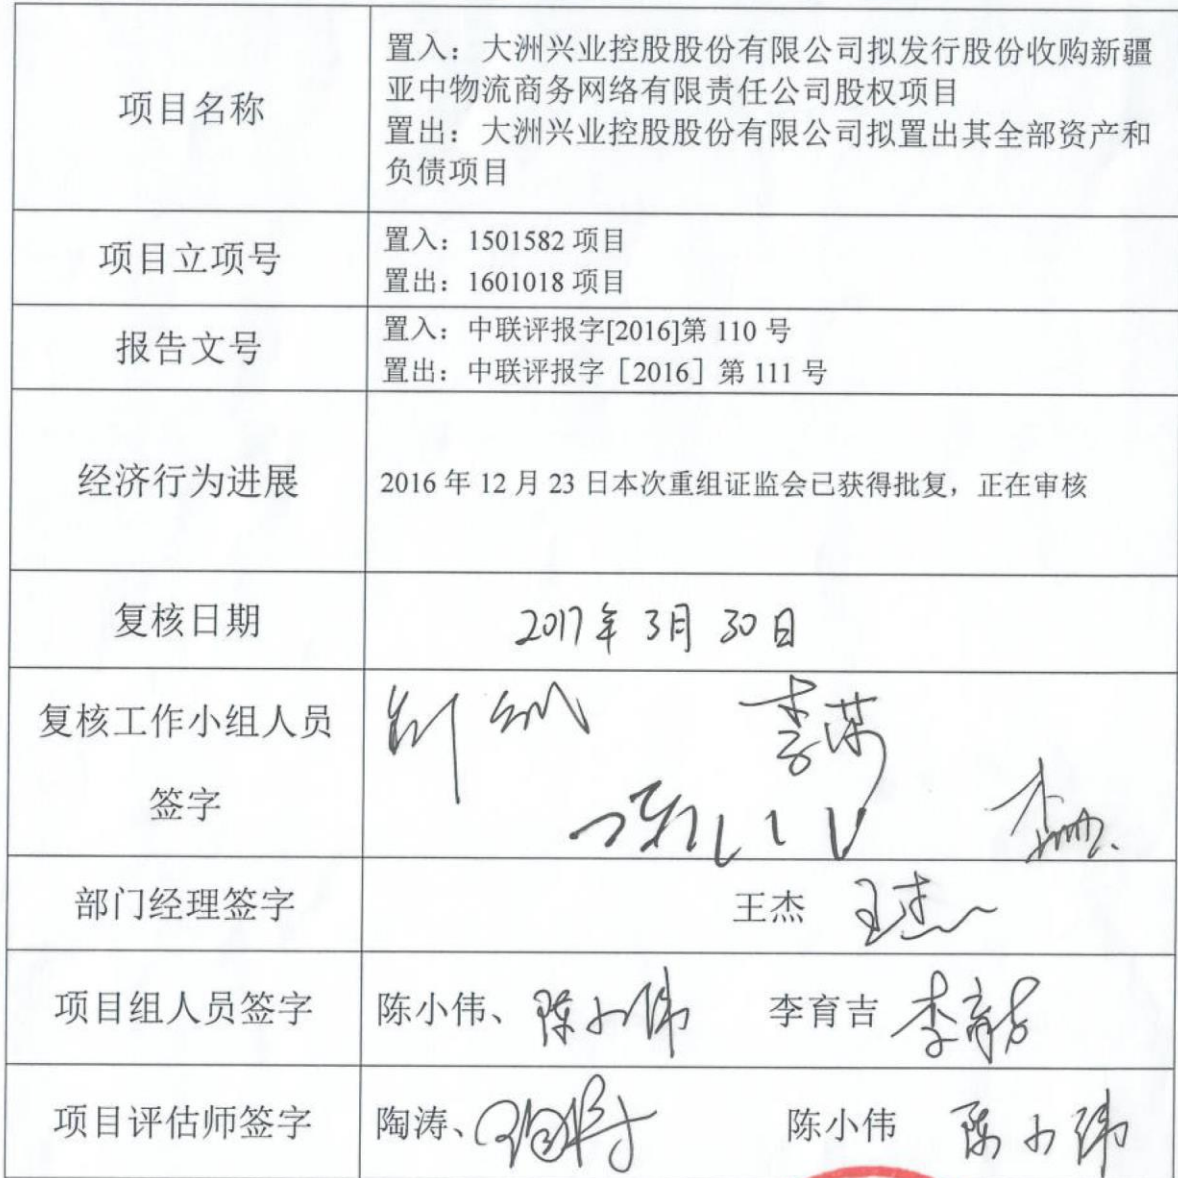 项目名称
置入：大洲兴业控股股份有限公司拟发行股份收购新疆
亚中物流商务网络有限责任公司股权项目
置出：大洲兴业控股股份有限公司拟置出其全部资产和
负债项目
项目立项号
置入：1501582 项目
置出：1601018 项目
报告文号
置入：中联评报字[2016]第 110 号
置出：中联评报字［2016］第 111 号
经济行为进展
2016 年 12 月 23 日本次重组证监会已获得批复，正在审核
复核日期
2017年 3月 30日
复核工作小组人员
签字
部门经理签字
王杰 王杰
项目组人员签字
陈小伟、陈小伟 李育吉 李育吉
项目评估师签字
陶涛、陶涛 陈小伟 陈小伟